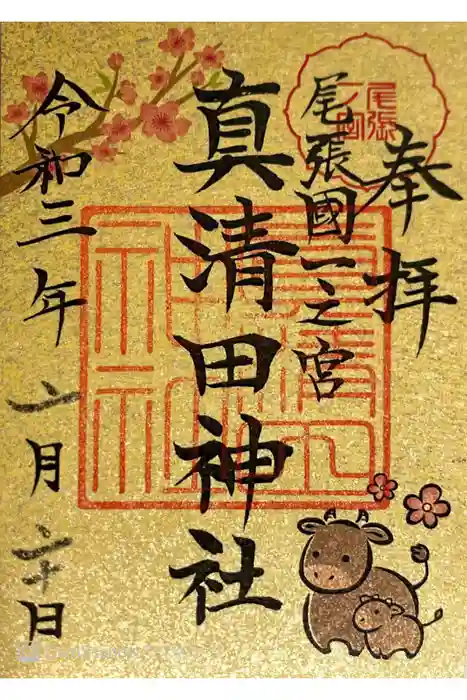 奉拝
尾張
尾張國一之宮
真清田神社
令和三年二月二十日